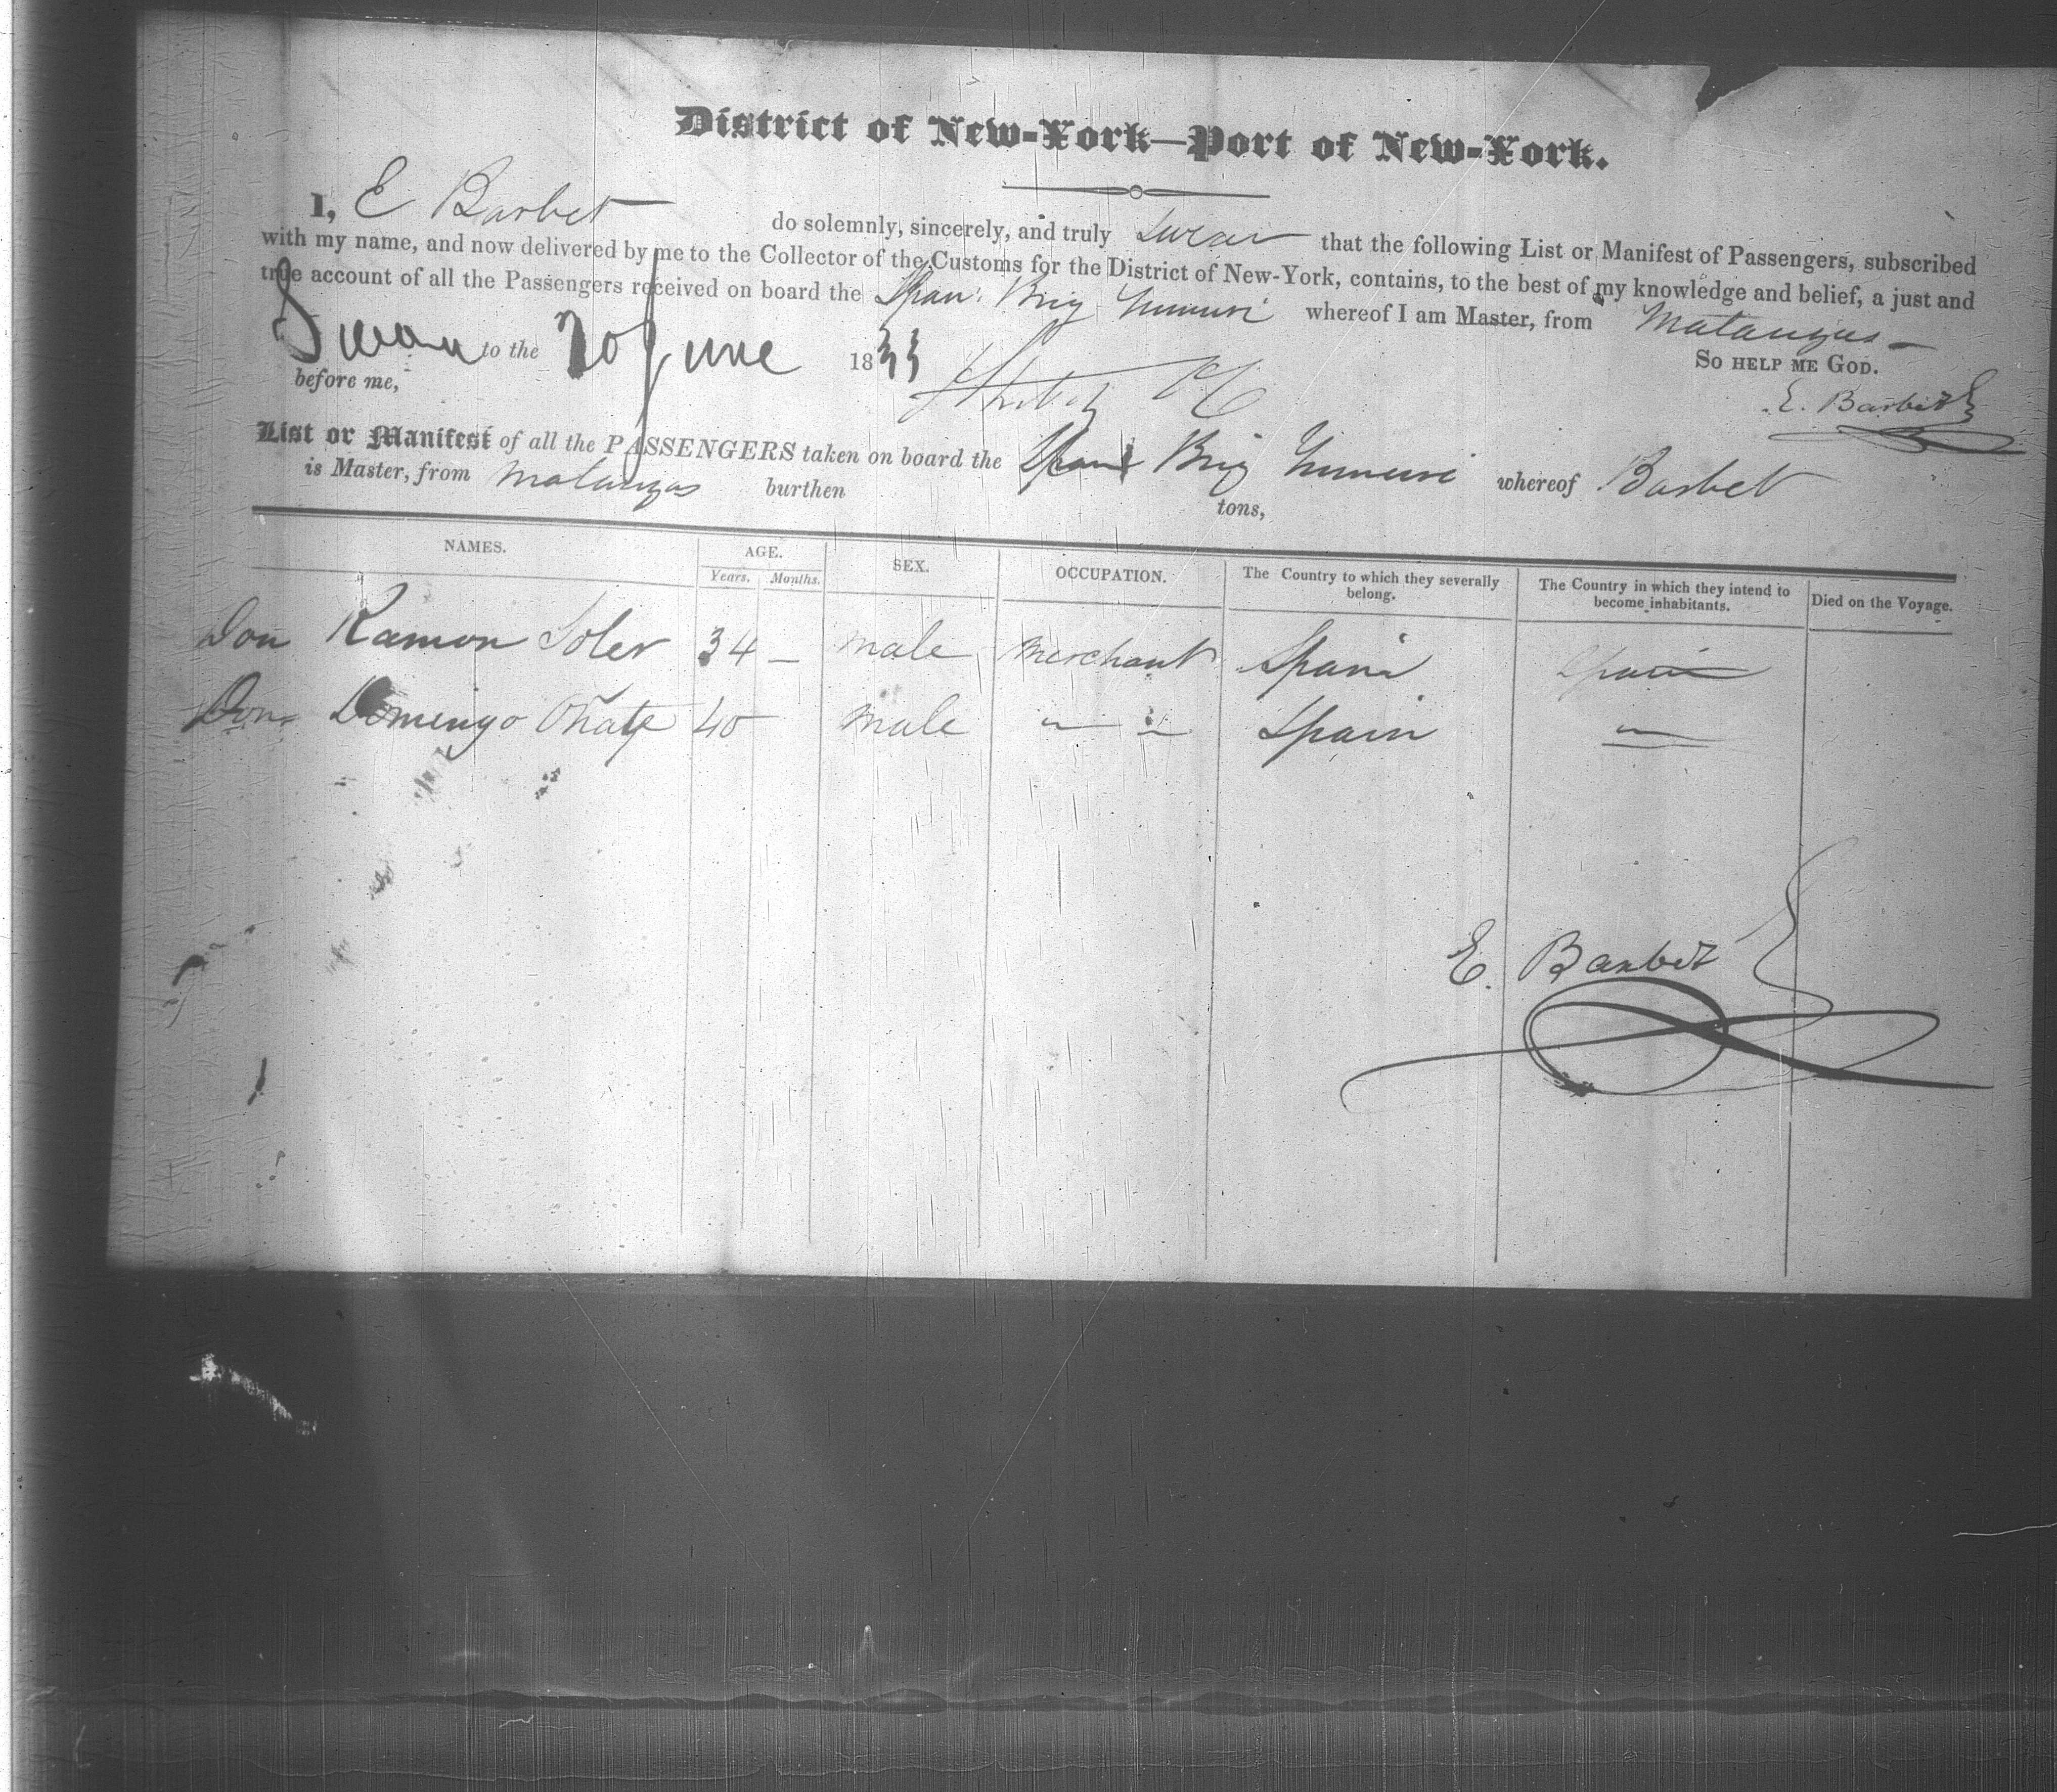 District of New-York—Port of New-York.
I, E Barbet do solemnly, sincerely, and truly Swear that the following List or Manifest of Passengers, subscribed
with my name, and now delivered by me to the Collector of the Customs for the District of New-York, contains, to the best of my knowledge and belief, a just and
true account of all the Passengers received on board the Span: Brig Yumuri whereof I am Master, from Matanzas
Swon to the 20 June 1833 So help me God.
before me, E. Barbet
List or Manifest of all the PASSENGERS taken on board the Span Brig Yumuri whereof Barbet
is Master, from Matanzas burthen tons,
NAMES. AGE. SEX. OCCUPATION. The Country to which they severally belong. The Country in which they intend to become inhabitants. Died on the Voyage.
Years. Months.
Don Ramon Soler 34 — male Merchant Spain Spain
Don Domingo Oñate 40 male " " Spain "
E. Barbet